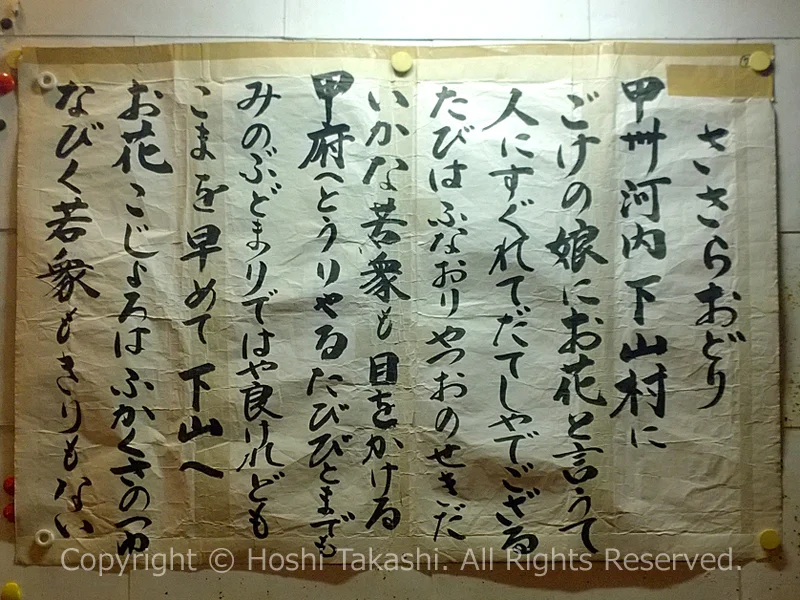 ささらおどり
甲州河内下山村に
ごけの娘にお花と言うて
人にすぐれてだてしやでござる
たびはふなおりやつおのせきだ
いかな若衆も目をかける
甲府へとうりやるたびびとまでも
みのぶどまりではや良けれども
こまを早めて下山へ
お花こじよろはふかくさの
なびく若衆もきりもない
Copyright © Hoshi Takashi. All Rights Reserved.